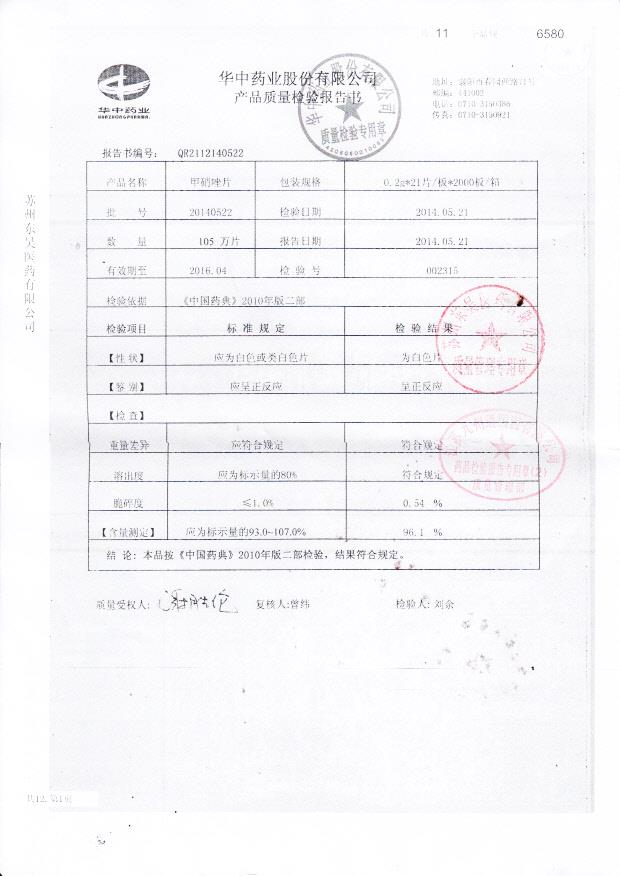 11 6580
华中药业股份有限公司
产品质量检验报告书
华中药业
HUAZHONG PHARMA.
邮编: 441002
电话: 0710-3150386
传真: 0710-3150921
质量检验专用章
报告书编号: QR2112140522
产品名称 甲硝唑片 包装规格 0.2g*21片/板*2000板/箱
批 号 20140522 检验日期 2014.05.21
数 量 105 万片 报告日期 2014.05.21
有效期至 2016.04 检 验 号 002315
检验依据 《中国药典》2010年版二部
检验项目 标 准 规 定 检 验 结 果
【性 状】 应为白色或类白色片 为白色片
【鉴 别】 应呈正反应 呈正反应
【检 查】
重量差异 应符合规定 符合规定
溶出度 应为标示量的80% 符合规定
脆碎度 ≤1.0% 0.54 %
【含量测定】 应为标示量的93.0~107.0% 96.1 %
结 论: 本品按《中国药典》2010年版二部检验，结果符合规定。
质量受权人: 复核人:曾纬 检验人: 刘余
苏州东吴医药有限公司
质量管理专用章
药品检验报告专用章(2)
质量管理部
共12, 第1页